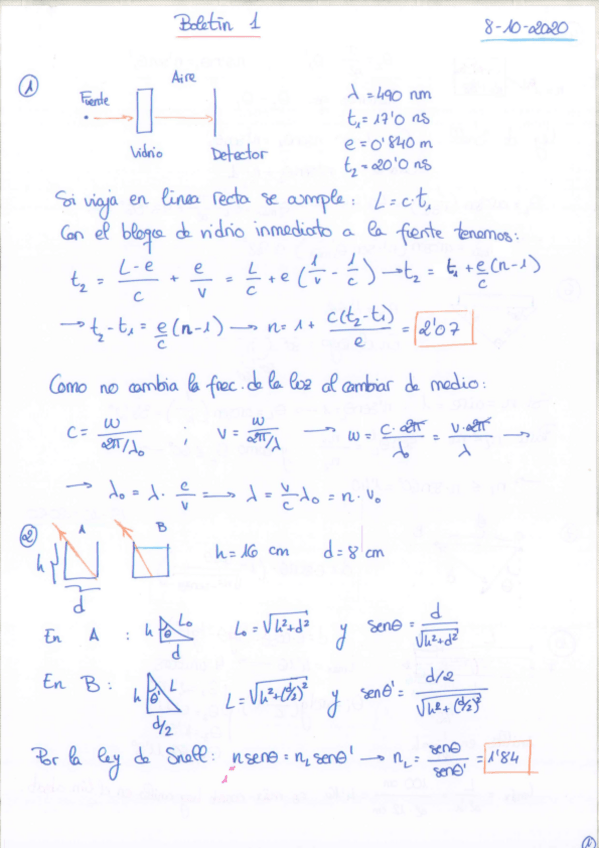 Boletín 1
8-10-2020
① Fuente Aire
Vidrio Detector
λ = 490 nm
t₁ = 17'0 ns
e = 0'840 m
t₂ = 20'0 ns
Si viaja en linea recta se cumple: L = c·t₁
Con el bloque de vidrio inmediato a la fuente tenemos:
t₂ = (L-e)/c + e/v = L/c + e(1/v - 1/c) → t₂ = t₁ + e/c (n-1)
→ t₂-t₁ = e/c (n-1) → n = 1 + c(t₂-t₁)/e = 2'07
Como no cambia la frec. de la luz al cambiar de medio:
c = w/(2π/λ₀) ; v = w/(2π/λ) → w = c·2π/λ₀ = v·2π/λ →
→ λ₀ = λ · c/v → λ = v/c λ₀ = n·v₀
② A B
h d
h = 16 cm d = 8 cm
En A : h θ L₀ d L₀ = √(h²+d²) y senθ = d/√(h²+d²)
En B : h θ' L d/2 L = √(h²+(d/2)²) y senθ' = (d/2)/√(h²+(d/2)²)
Por la ley de Snell: n senθ = n_L senθ' → n_L = senθ/senθ' = 1'84
1
①